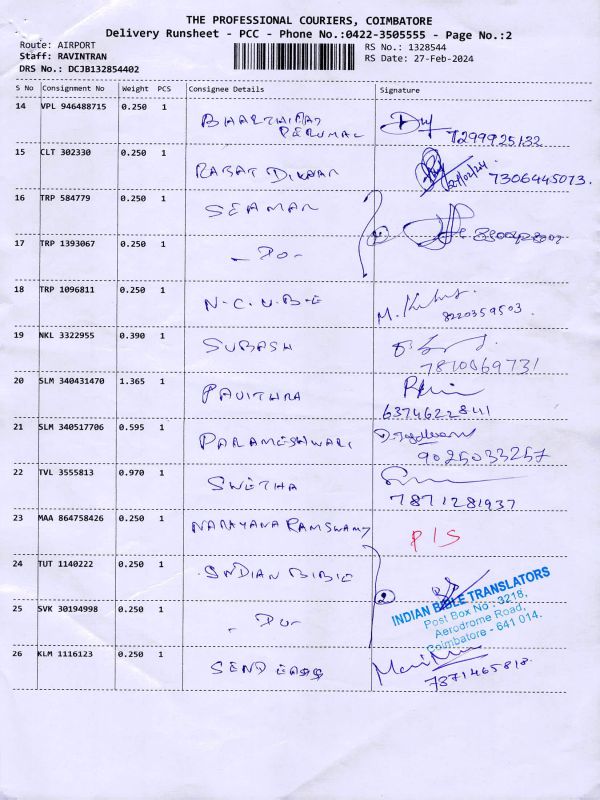 THE PROFESSIONAL COURIERS, COIMBATORE
Delivery Runsheet - PCC - Phone No.:0422-3505555 - Page No.:2
Route: AIRPORT RS No.: 1328544
Staff: RAVINTRAN RS Date: 27-Feb-2024
DRS No.: DCJB132854402
S No Consignment No Weight PCS Consignee Details Signature
14 VPL 946488715 0.250 1 PERUMAL 7299925132
15 CLT 302330 0.250 1 27/02/24 7306445073.
16 TRP 584779 0.250 1 SEAMAN
17 TRP 1393067 0.250 1 - Do - 2
18 TRP 1096811 0.250 1 N.C.U.B.E 8220359503.
19 NKL 3322955 0.390 1 SUBASH 7810069731
20 SLM 340431470 1.365 1 PAVITHRA 6374622841
21 SLM 340517706 0.595 1 PARAMESHWARI 9025033257
22 TVL 3555813 0.970 1 SWETHA 7871281937
23 MAA 864758426 0.250 1 NARAYANA RAMSWAMY P/S
24 TUT 1140222 0.250 1 INDIAN BIBLE 2
INDIAN BIBLE TRANSLATORS
Post Box No : 3218,
Aerodrome Road,
Coimbatore - 641 014.
25 SVK 30194998 0.250 1 - Do -
26 KLM 1116123 0.250 1 7371465818.